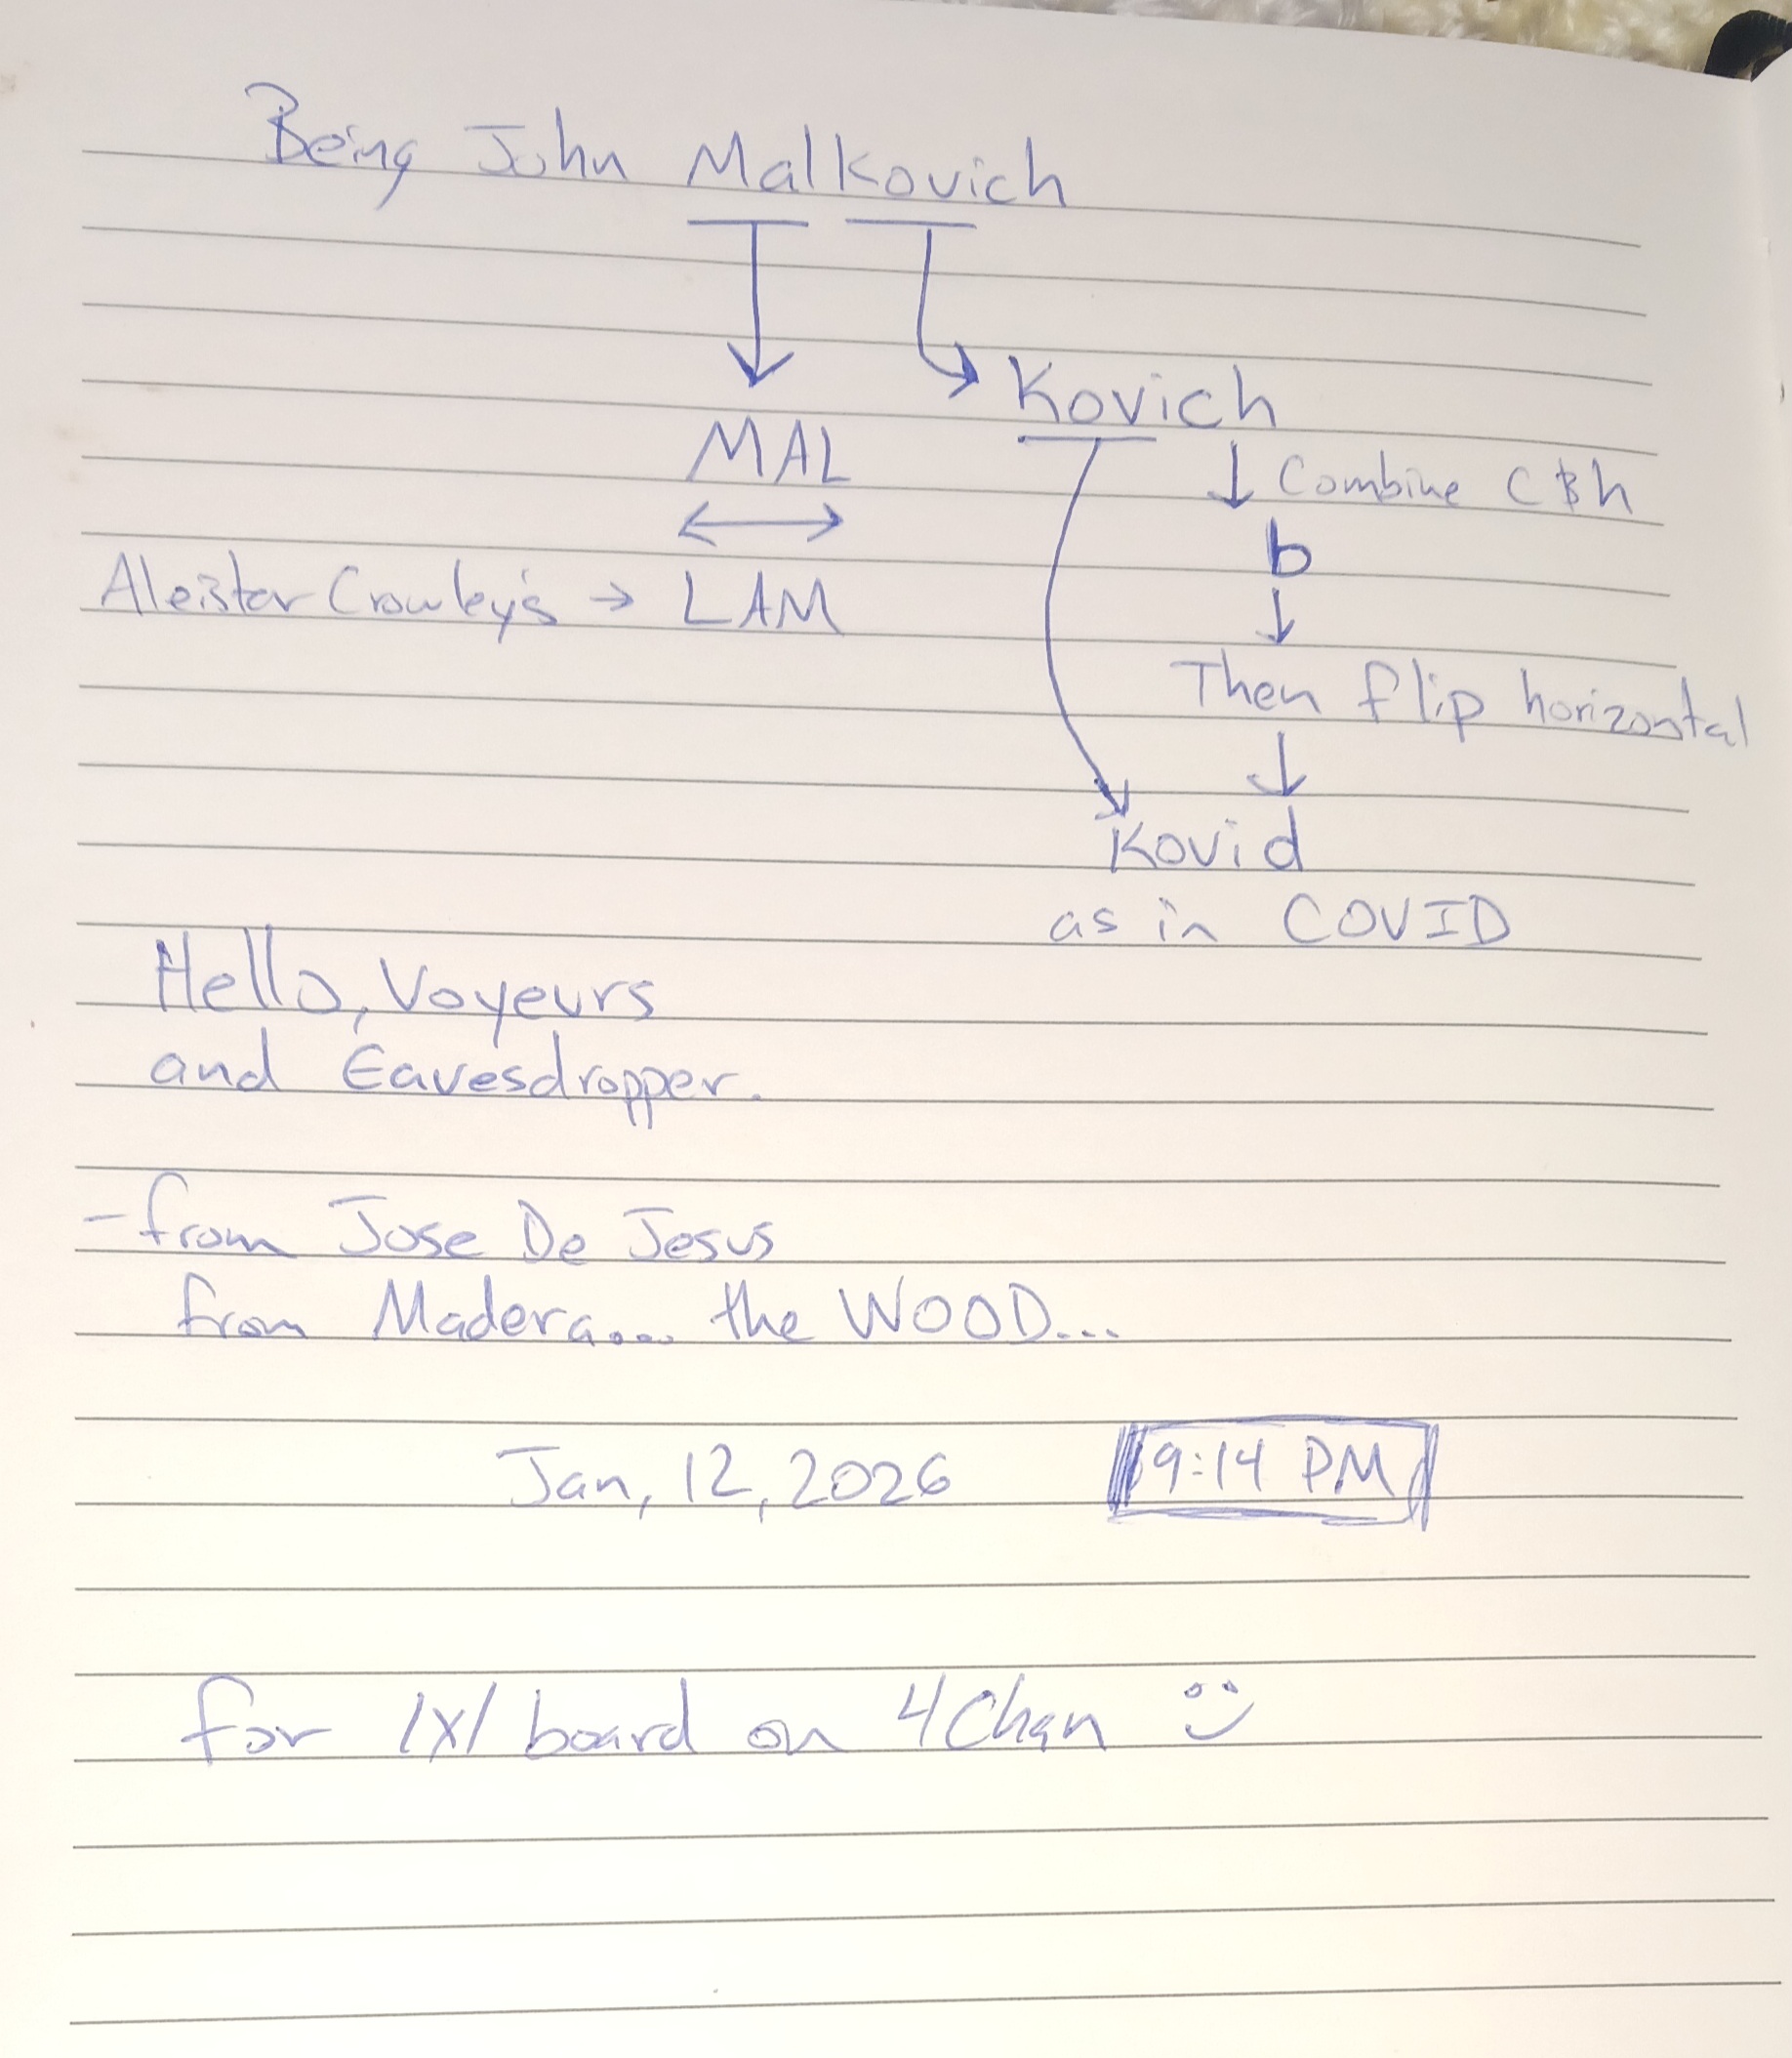 Being John Malkovich
Kovich
MAL
Combine C & h
b
Aleister Crowley's → LAM
Then flip horizontal
Kovid
as in COVID
Hello, Voyeurs
and Eavesdropper.
- from Jose De Jesus
from Madera.... the WOOD...
Jan, 12, 2026 9:14 PM
for /x/ board on 4Chan